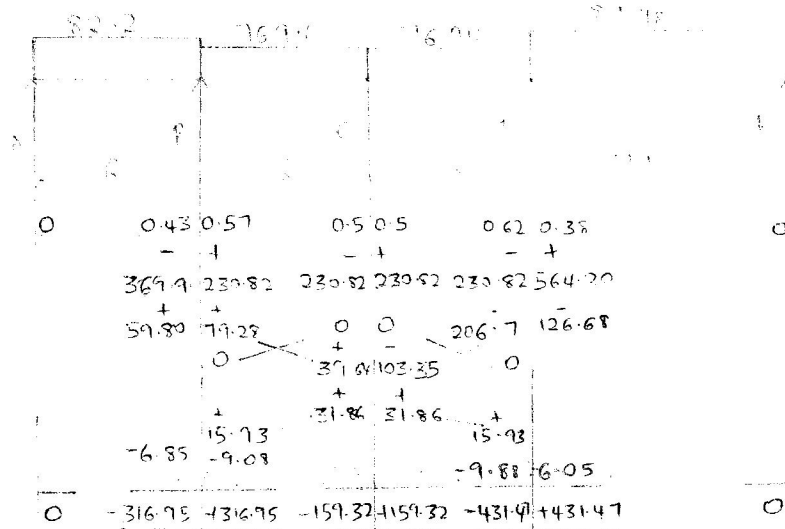 82.2
0 0.43 0.57 0.5 0.5 0.62 0.38 0
- + - + - +
369.9 230.82 230.82 230.82 230.82 564.20
+ + - -
59.80 79.28 0 0 206.7 126.68
+ -
0 39.64 103.35 0
+ +
31.86 31.86
+ +
15.93 15.93
-6.85 -9.08
-9.88 -6.05
0 -316.95 +316.95 -159.32 +159.32 -431.47 +431.47 0